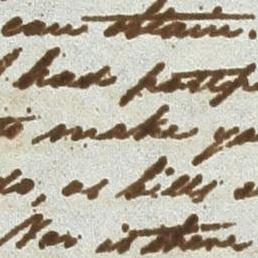 can attain.
had postp
to make yo
do, as bills
Nor is there